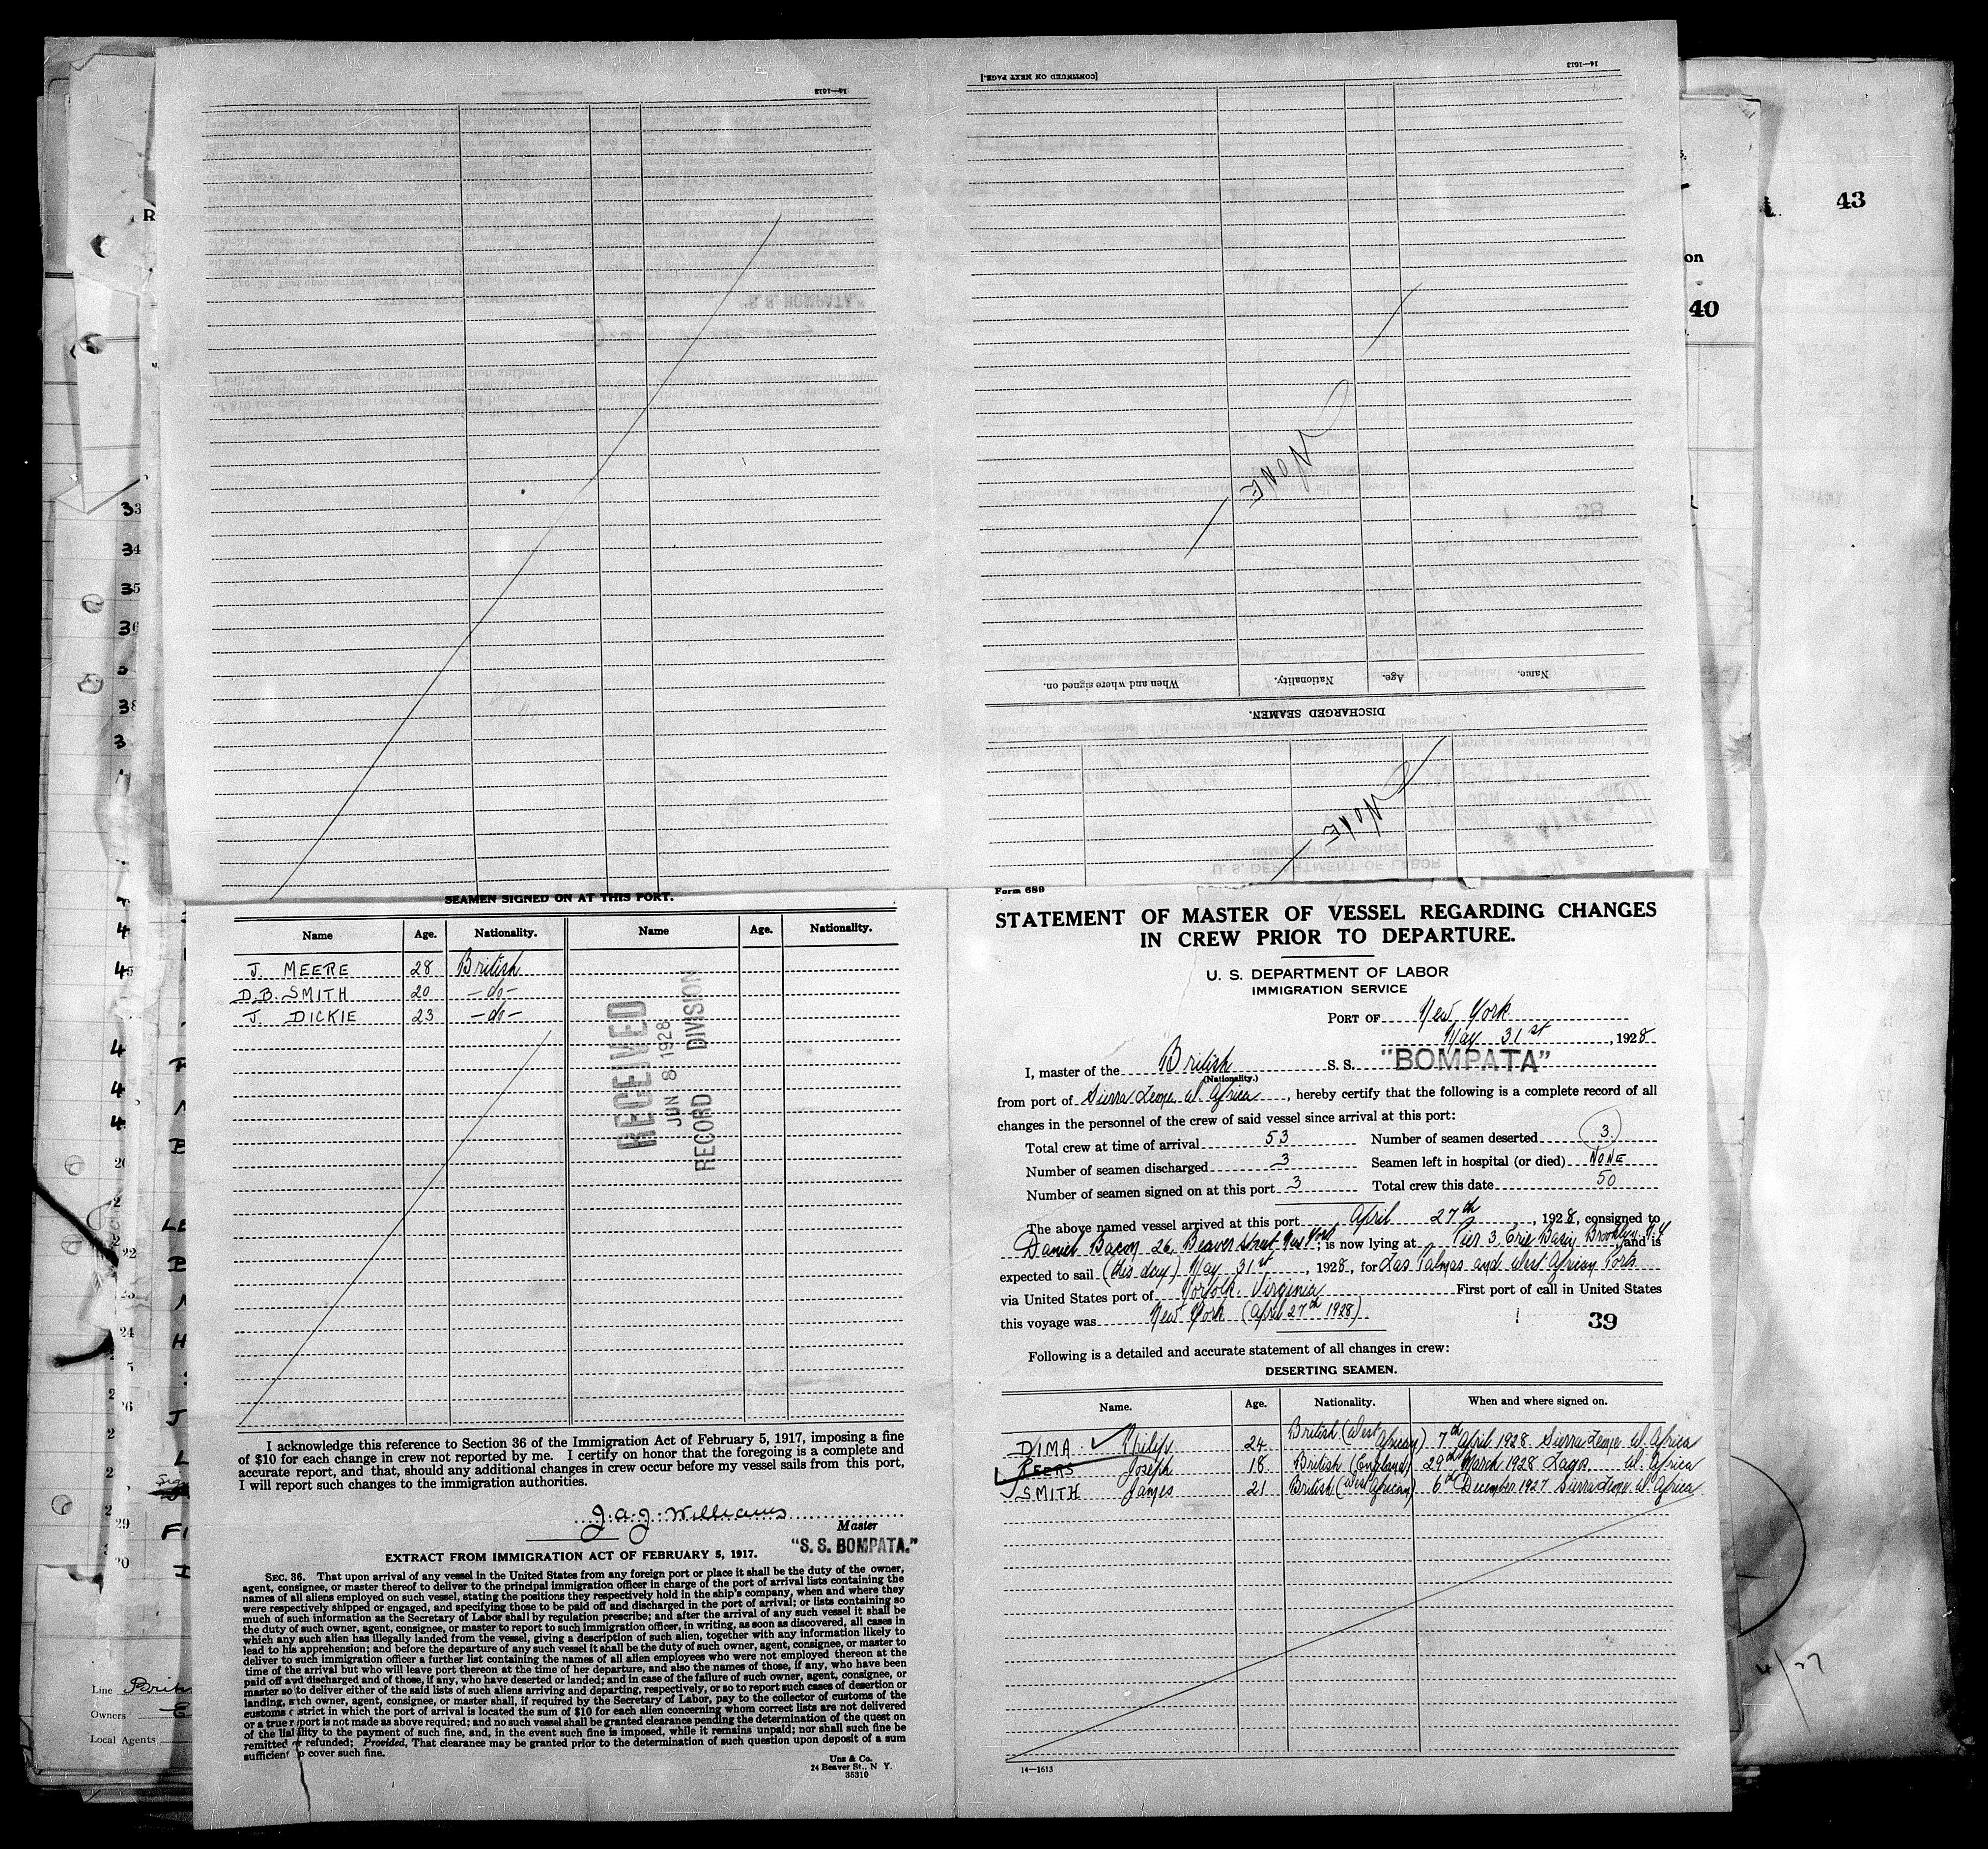 [CONTINUED ON NEXT PAGE.]
14—1613
14—1613
NONE
When and where signed on. Nationality. Age. Name.
DISCHARGED SEAMEN.
NONE
43
on
40
33
34
35
SEAMEN SIGNED ON AT THIS PORT.
Name Age. Nationality. Name Age. Nationality.
J. MEERE 28 British
D.B. SMITH 20 —do—
J. DICKIE 23 —do—
RECEIVED
JUN 8 1928
RECORD DIVISION
I acknowledge this reference to Section 36 of the Immigration Act of February 5, 1917, imposing a fine
of $10 for each change in crew not reported by me. I certify on honor that the foregoing is a complete and
accurate report, and that, should any additional changes in crew occur before my vessel sails from this port,
I will report such changes to the immigration authorities.
J.A.J. Williams
Master
"S. S. BOMPATA."
EXTRACT FROM IMMIGRATION ACT OF FEBRUARY 5, 1917.
SEC. 36. That upon arrival of any vessel in the United States from any foreign port or place it shall be the duty of the owner,
agent, consignee, or master thereof to deliver to the principal immigration officer in charge of the port of arrival lists containing the
names of all aliens employed on such vessel, stating the positions they respectively hold in the ship's company, when and where they
were respectively shipped or engaged, and specifying those to be paid off and discharged in the port of arrival; or lists containing so
much of such information as the Secretary of Labor shall by regulation prescribe; and after the arrival of any such vessel it shall be
the duty of such owner, agent, consignee, or master to report to such immigration officer, in writing, as soon as discovered, all cases in
which any such alien has illegally landed from the vessel, giving a description of such alien, together with any information likely to
lead to his apprehension; and before the departure of any such vessel it shall be the duty of such owner, agent, consignee, or master to
deliver to such immigration officer a further list containing the names of all alien employees who were not employed thereon at the
time of the arrival but who will leave port thereon at the time of her departure, and also the names of those, if any, who have been
paid off and discharged and of those, if any, who have deserted or landed; and in case of the failure of such owner, agent, consignee, or
master so to deliver either of the said lists of such aliens arriving and departing, respectively, or so to report such cases of desertion or
landing, such owner, agent, consignee, or master shall, if required by the Secretary of Labor, pay to the collector of customs of the
customs district in which the port of arrival is located the sum of $10 for each alien concerning whom correct lists are not delivered
or a true report is not made as above required; and no such vessel shall be granted clearance pending the determination of the quest on
of the liability to the payment of such fine, and, in the event such fine is imposed, while it remains unpaid; nor shall such fine be
remitted or refunded; Provided, That clearance may be granted prior to the determination of such question upon deposit of a sum
sufficient to cover such fine.
Uns & Co.
24 Beaver St., N Y.
35310
Line
Owners
Local Agents
Form 689
STATEMENT OF MASTER OF VESSEL REGARDING CHANGES
IN CREW PRIOR TO DEPARTURE.
U. S. DEPARTMENT OF LABOR
IMMIGRATION SERVICE
PORT OF New York
May 31st, 1928
I, master of the British S. S. "BOMPATA"
(Nationality.)
from port of Sierra Leone W. Africa, hereby certify that the following is a complete record of all
changes in the personnel of the crew of said vessel since arrival at this port:
Total crew at time of arrival 53 Number of seamen deserted 3
Number of seamen discharged 3 Seamen left in hospital (or died) NONE
Number of seamen signed on at this port 3 Total crew this date 50
The above named vessel arrived at this port April 27th, 1928, consigned to
Daniel Bacon 26, Beaver Street New York, is now lying at Pier 3, Erie Basin Brooklyn N.Y and is
expected to sail (this day) May 31st, 1928, for Las Palmas and West African Ports
via United States port of Norfolk, Virginia First port of call in United States
this voyage was New York (April 27th 1928)
39
Following is a detailed and accurate statement of all changes in crew:
DESERTING SEAMEN.
Name. Age. Nationality. When and where signed on.
DIMA Philip 24 British (West African) 7th April 1928 Sierra Leone W. Africa
PEERS Joseph 18 British (England) 29th March 1928 Lagos W. Africa
SMITH James 21 British (West African) 6th December 1927 Sierra Leone W. Africa
14—1613
4/27